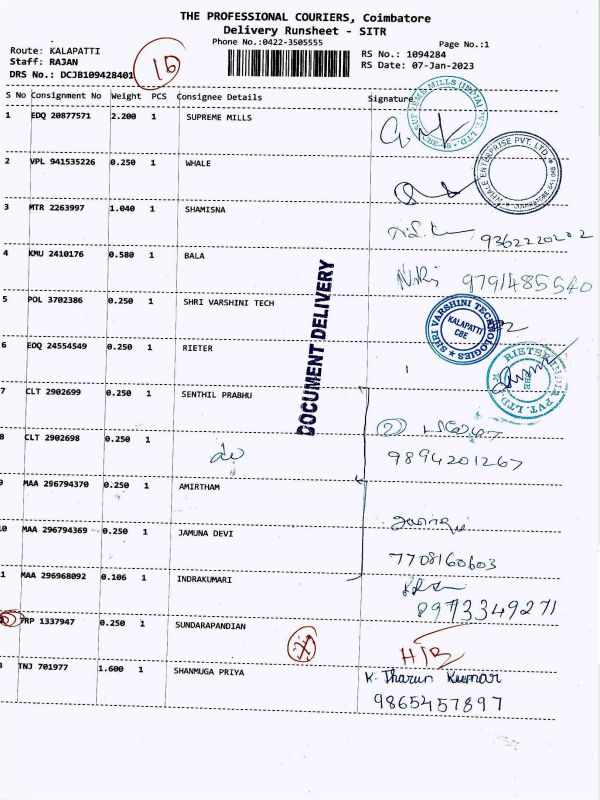 THE PROFESSIONAL COURIERS, Coimbatore
Delivery Runsheet - SITR
Phone No.:0422-3505555 Page No.:1
Route: KALAPATTI RS No.: 1094284
Staff: RAJAN RS Date: 07-Jan-2023
DRS No.: DCJB109428401
S No Consignment No Weight PCS Consignee Details Signature
1 EDQ 20877571 2.200 1 SUPREME MILLS
2 VPL 941535226 0.250 1 WHALE
3 MTR 2263997 1.040 1 SHAMISNA
9362220202
4 KMU 2410176 0.580 1 BALA
9791485640
5 POL 3702386 0.250 1 SHRI VARSHINI TECH
SHRI VARSHINI TECHNOLOGIES
KALAPATTI
CBE
DOCUMENT DELIVERY
6 EDQ 24554549 0.250 1 RIETER
7 CLT 2902699 0.250 1 SENTHIL PRABHU
8 CLT 2902698 0.250 1
do
9894201267
9 MAA 296794370 0.250 1 AMIRTHAM
10 MAA 296794369 0.250 1 JAMUNA DEVI
7708160603
1 MAA 296968092 0.106 1 INDRAKUMARI
8973349271
TRP 1337947 0.250 1 SUNDARAPANDIAN
3 TNJ 701977 1.600 1 SHANMUGA PRIYA
K. Tharun Kumar
9865457897